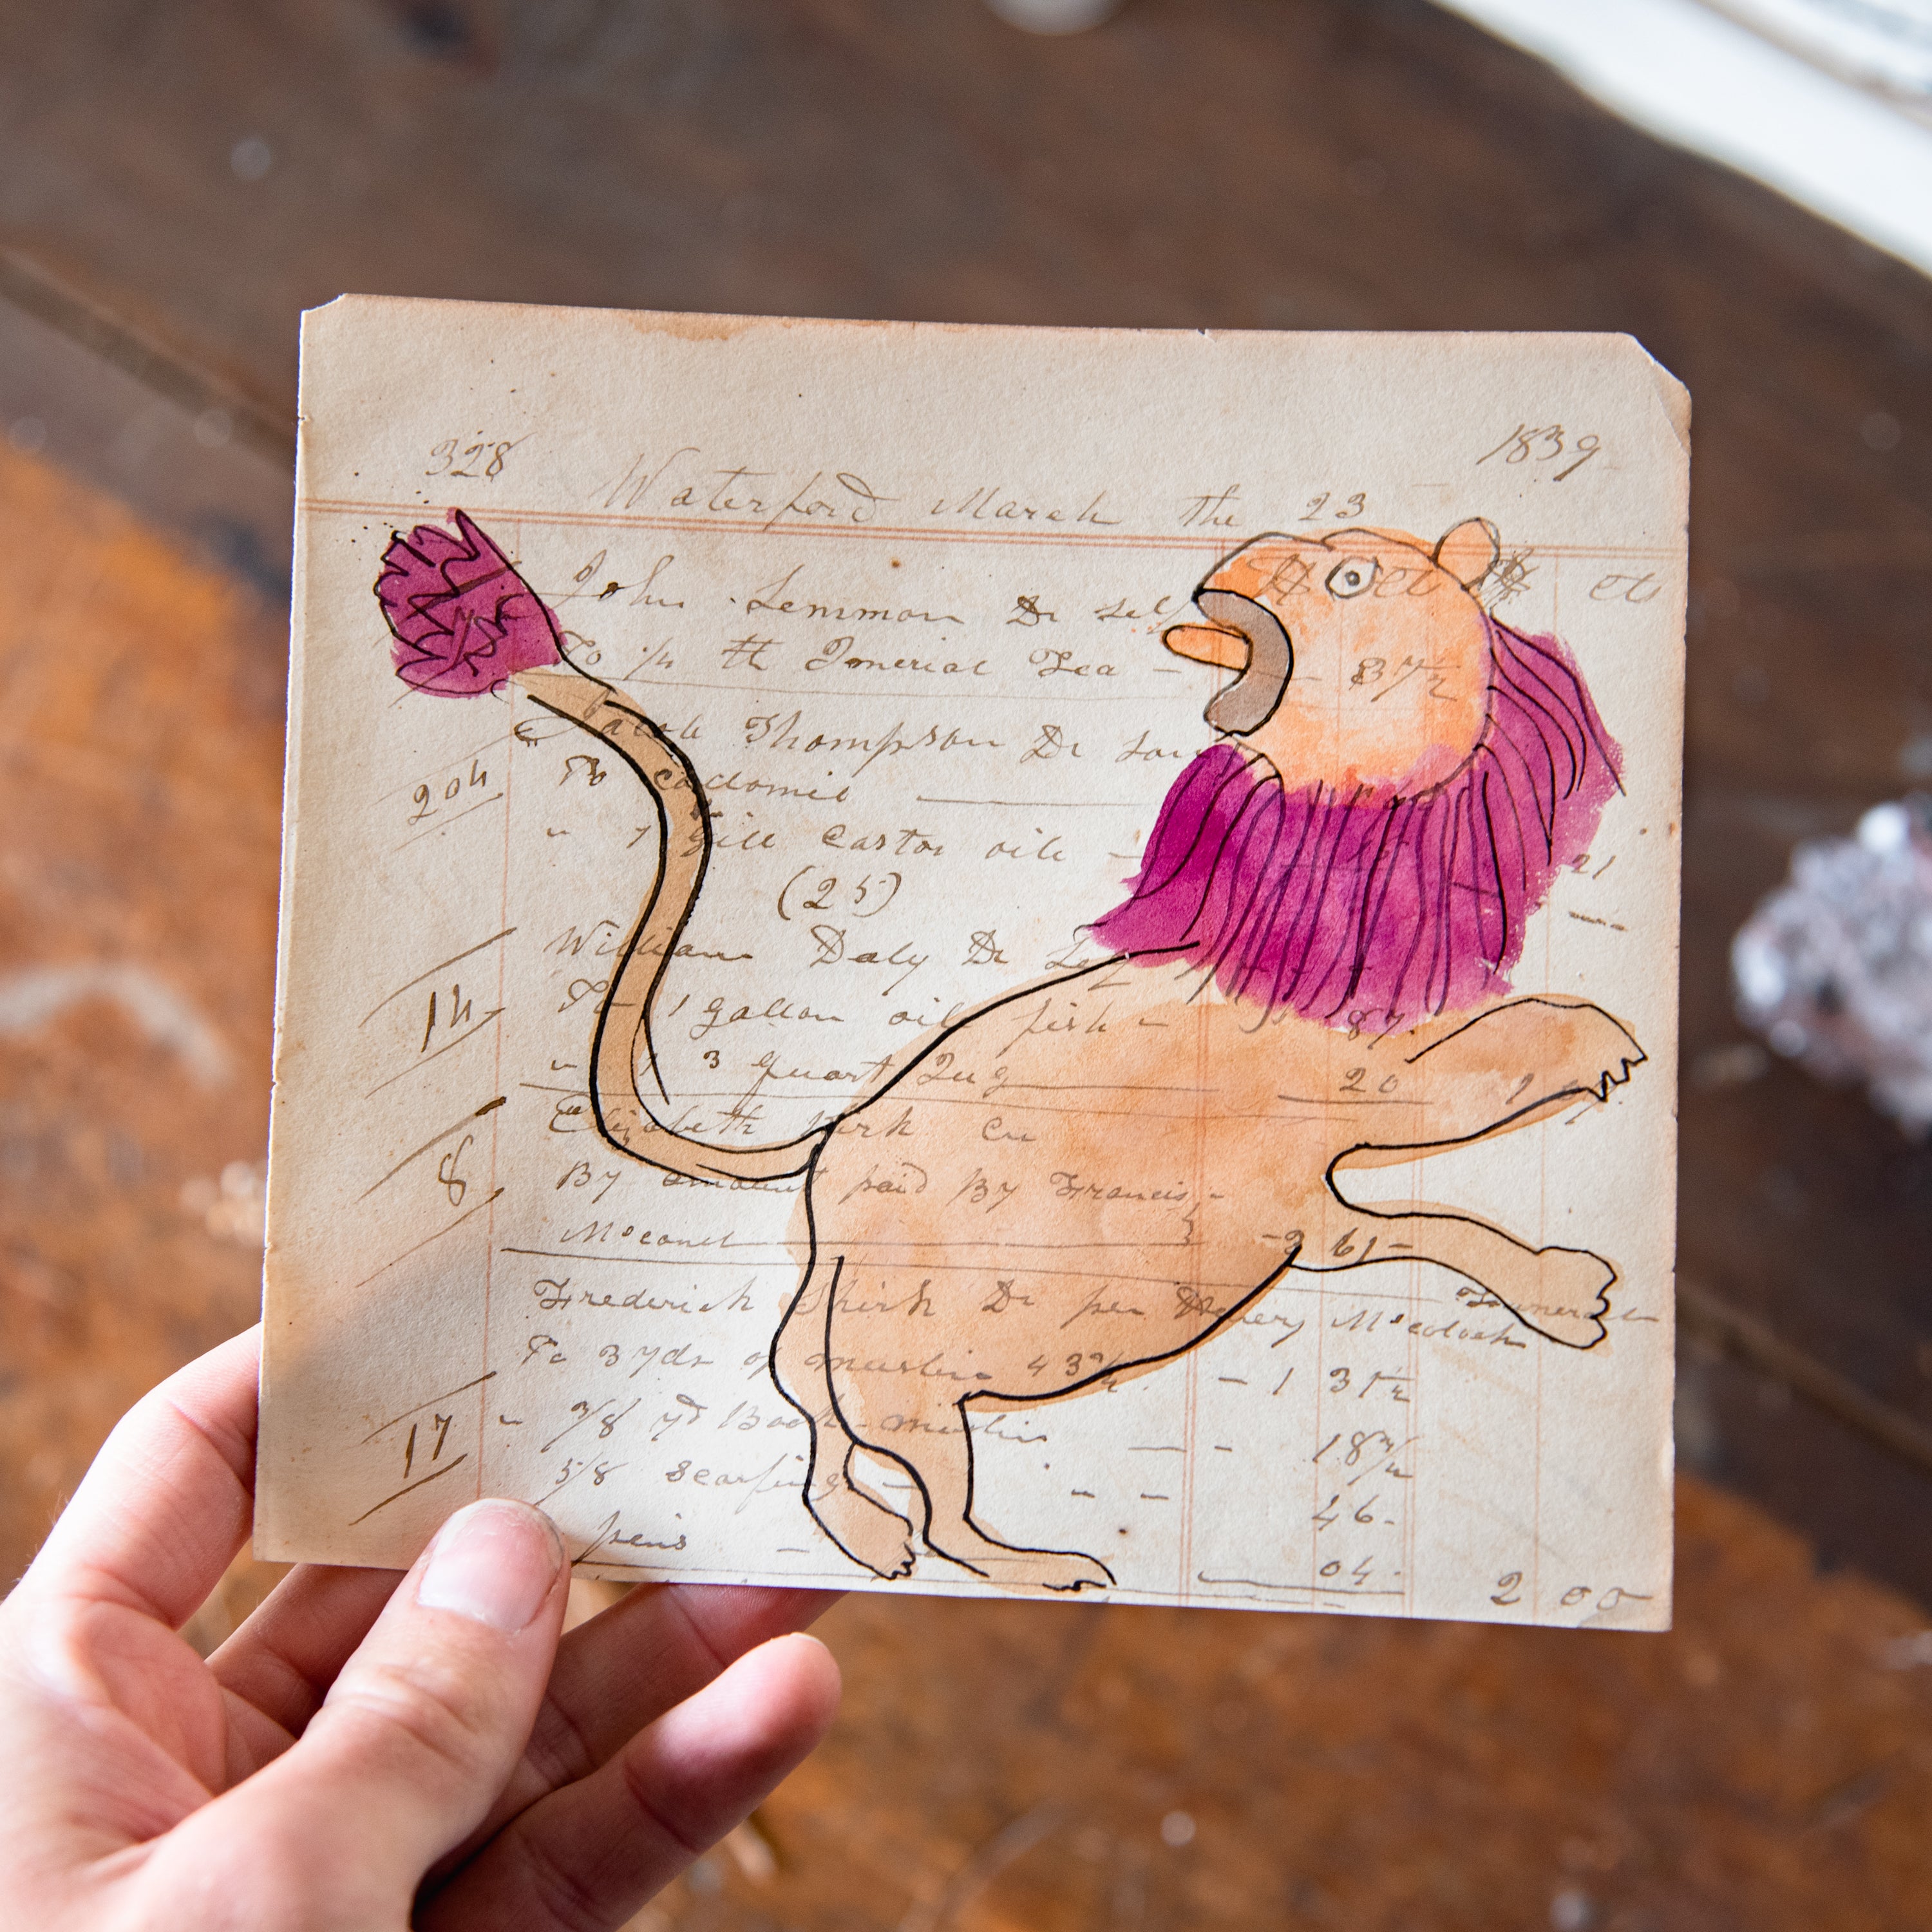 328 1839
Waterford March the 23
John Lemmon Dr Self
To 1/4 ℔ Imerial Tea - 37½
Thompson Dr
204 To callomil
" 1 gill Castor oil - 21
(25)
William Daly Dr
14 To 1 gallon oil fish - 87.
" 1 3 quart Jug 20 1
Elizabeth Kirk Cr
8 By amount paid By Francis
McConel - 2 61 -
Frederick Shirk Dr per Henry McColoch
To 3 yds of muslin 43¾ - 1 31½
17 " 3/8 yd Book muslin - - 18¾
5/8 Scarfing - " - 46.
pens - 04. 2 00